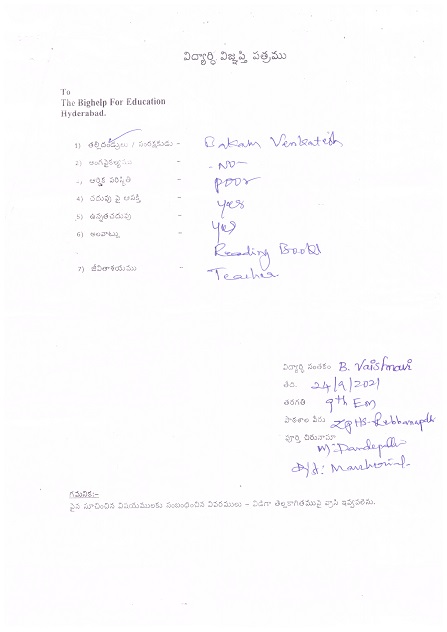 విద్యార్థి విజ్ఞప్తి పత్రము
To
The Bighelp For Education
Hyderabad.
1) తల్లిదండ్రులు / సంరక్షకుడు - Bakam Venkatesh
2) అంగవైకల్యము - - NO -
3) ఆర్థిక పరిస్థితి - poor
4) చదువు పై ఆసక్తి - yes
5) ఉన్నతచదువు - yes
6) అలవాట్లు -
Reading Books
7) జీవితాశయము - Teacher
విద్యార్థి సంతకం B. Vaishnavi
తేది. 24/9/2021
తరగతి 9th EM
పాఠశాల పేరు ZPHS-Rebbanapalli
పూర్తి చిరునామా
M: Dandepalli
D/d: Mancherial
గమనిక:-
పైన సూచించిన విషయములకు సంబంధించిన వివరములు - విడిగా తెల్లకాగితముపై వ్రాసి ఇవ్వవలెను.